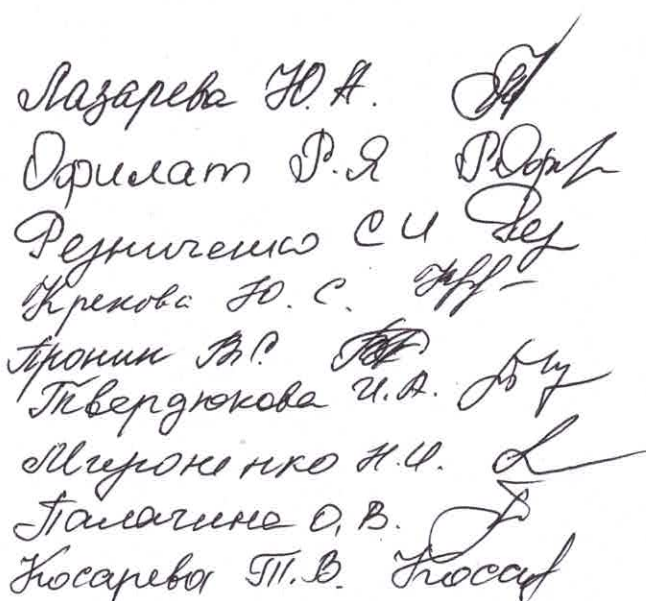 Лазарева Ю.А.
Офилат Р.Я
Резниченко С И Рез
Крекова Ю.С.
Пронин В.С.
Твердюкова И.А.
Мироненко Н.И.
Палагина О.В.
Косарева Т.В. Косар